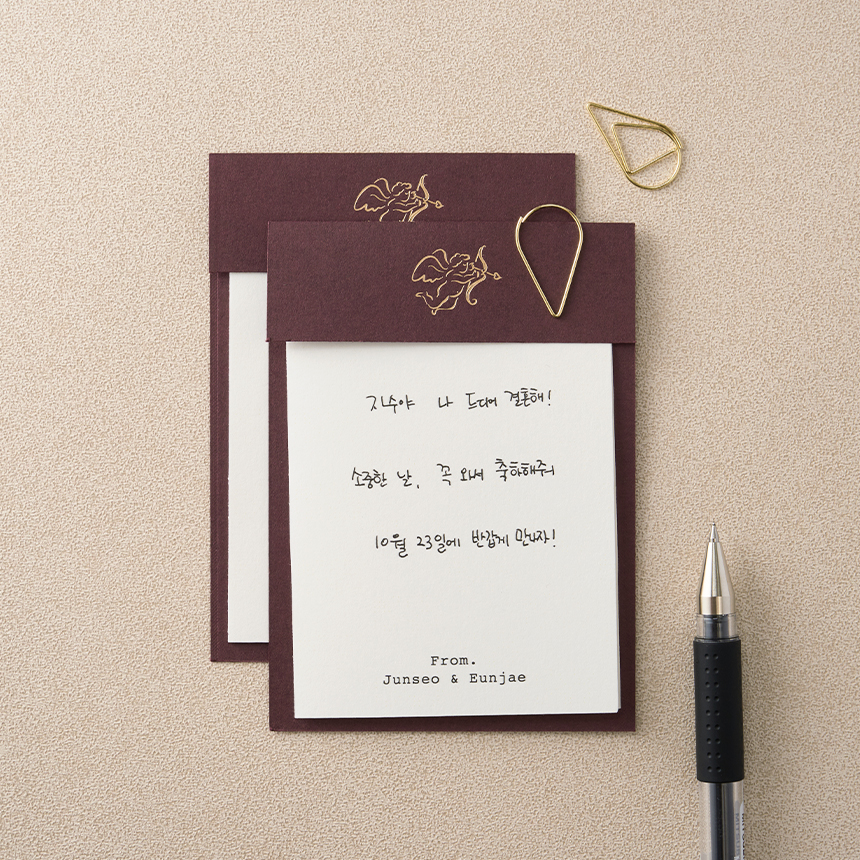 지수야 나 드디어 결혼해!
소중한 날, 꼭 와서 축하해줘
10월 23일에 반갑게 만나자!
From.
Junseo & Eunjae